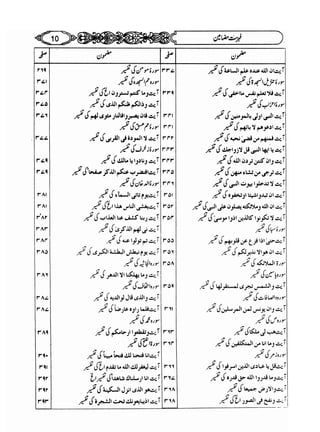 فہرست مضامین
10
صفحہ مضمون صفحہ مضمون
آیت ان اللہ عندہ علم الساعة کی تفسیر ۳۳۷
سورۃ تنزیل السجدۃ کی تفسیر
آیت فلا تعلم نفس ما اخفی کی تفسیر ۳۳۹
سورۃ احزاب کی تفسیر
آیت النبی اولی بالمومنین کی تفسیر
آیت ادعوھم لا بائھم کی تفسیر
آیت فمنھم من قضی نحبہ کی تفسیر
آیت یا ایھا النبی قل لازواجك کی تفسیر
آیت وان کنتن تردن اللہ کی تفسیر
آیت ترجی من تشاء منھن کی تفسیر
آیت لا تدخلوا بیوت النبی کی تفسیر
آیت ان تبدوا شیئا او تخفوہ کی تفسیر ۳۵۱
آیت ان اللہ وملائکتہ یصلون علی النبی کی تفسیر ۳۵۲
آیت لا تکونوا کالذین اذوا موسیٰ کی تفسیر ۳۵۳
سورۃ سبا کی تفسیر
آیت حتی اذا فزع عن قلوبھم کی تفسیر ۳۵۵
آیت ان ھو الا نذیر لکم کی تفسیر
سورۃ الملائکہ کی تفسیر ۳۵۸
سورۃ یاسین کی تفسیر
آیت والشمس تجری لمستقرلھا کی تفسیر ۳۵۹
سورۃ الصافات کی تفسیر
آیت وان یونس لمن المرسلین کی تفسیر ۳۶۱
سورۃ ص کی تفسیر
آیت ھب لی ملکا کی تفسیر ۳۶۳
آیت وما انا من المتکلفین کی تفسیر
سورۃ زمر کی تفسیر
آیت قل یا عبادی الذین اسرفوا کی تفسیر
آیت وما قدروا اللہ حق قدرہ کی تفسیر
آیت والارض جمیعا کی تفسیر
آیت ونفخ فی الصور الخ کی تفسیر ۳۶۸
سورۃ مومن کی تفسیر ۳۶۹
سورۃ حم السجدہ کی تفسیر ۳۷۱
آیت وما کنتم تستترون الخ کی تفسیر ۳۷۳
آیت وذالکم ظنکم الذی کی تفسیر
آیت فان یصبروا فالنار مثوی لھم کی تفسیر
سورۃ حم عسق کی تفسیر
آیت الا المودۃ فی القربی کی تفسیر
سورۃ زخرف کی تفسیر
آیت ونادوا یا مالك کی تفسیر ۳۷۹
آیت افنضرب عنکم الذکر صفحا کی تفسیر ۳۷۹
سورۃ الدخان کی تفسیر
آیت یوم تاتی السماء کی تفسیر ۳۸۱
آیت یغشی الناس ھذا الخ کی تفسیر ۳۸۱
آیت ربنا کشف عنا العذاب کی تفسیر
آیت انی لھم الذکری کی تفسیر ۳۸۳
آیت ثم تولوا عنہ کی تفسیر
آیت یوم نبطش البطشة الکبری کی تفسیر
سورۃ جاثیہ کی تفسیر
آیت وما یھلکنا الا الدھر کی تفسیر
سورۃ الاحقاف کی تفسیر
آیت والذی قال لوالدیہ کی تفسیر ۳۸۷
آیت فلما راوہ عارضا کی تفسیر
سورۃ محمد کی تفسیر
آیت وتقطعوا ارحامکم کی تفسیر ۳۸۹
سورۃ الفتح کی تفسیر
آیت انا فتحنا لك فتحا مبینا کی تفسیر ۳۹۰
آیت لیغفر لك اللہ ما تقدم الخ کی تفسیر ۳۹۱
آیت انا ارسلناك شاھدا الخ کی تفسیر ۳۹۲
آیت ھو الذی انزل السکینة کی تفسیر
آیت اذ یبایعونك تحت الشجرۃ کی تفسیر ۳۹۳